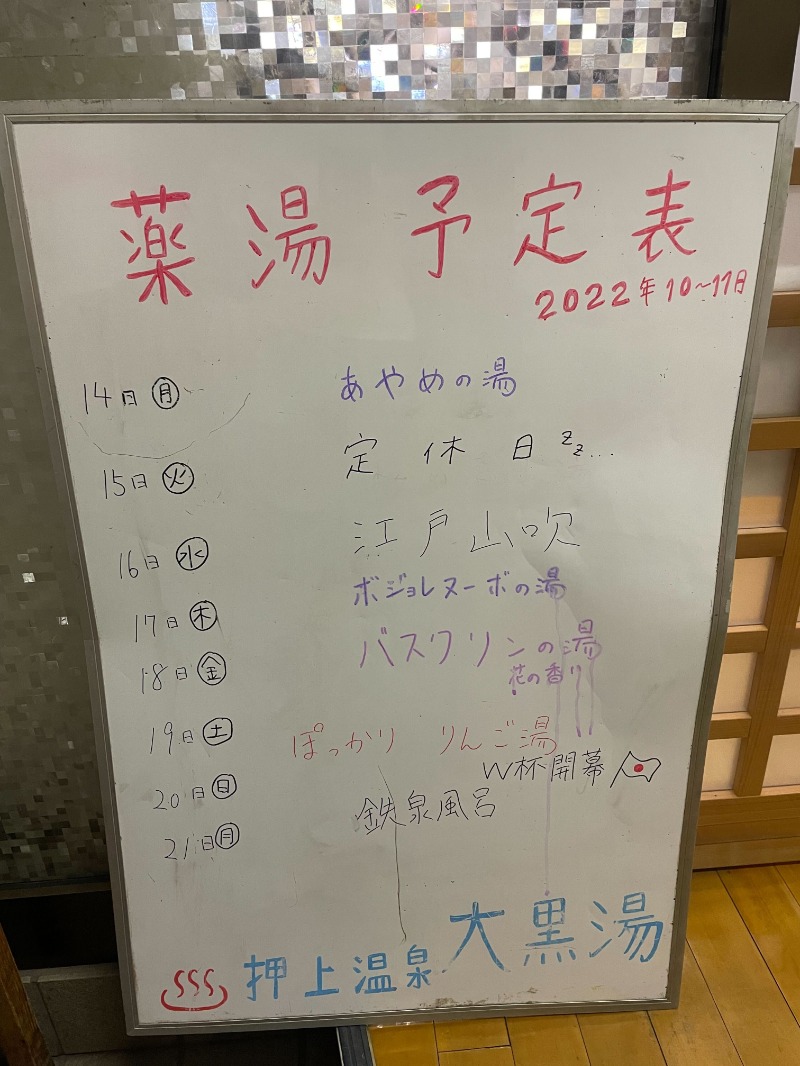 薬湯予定表
2022年10~11日
14日㊊ あやめの湯
15日㊋ 定休日zz...
16日㊌ 江戸山吹
17日㊍ ボジョレヌーボの湯
18日㊎ バスクリンの湯
花の香り
19日㊏ ぽっかり りんご湯
20日㊐ W杯開幕
21日㊊ 鉄泉風呂
押上温泉 大黒湯